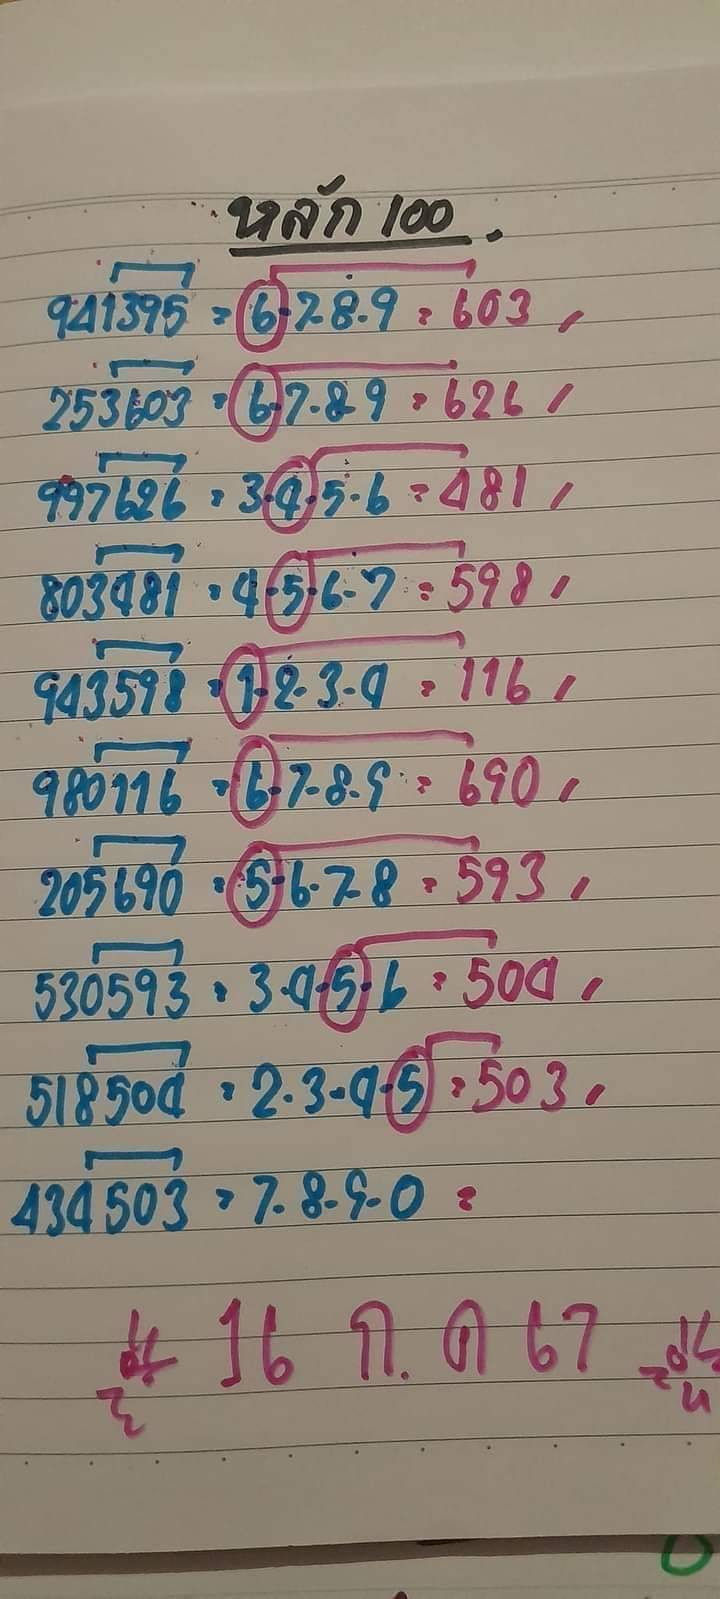 หลัก 100.
941395 = 6-7-8-9 = 603 /
253603 = 6-7-8-9 = 626 /
997626 = 3-4-5-6 = 481 /
803481 = 4-5-6-7 = 598 /
943598 = 1-2-3-4 = 116 /
980116 = 6-7-8-9 = 690 /
205690 = 5-6-7-8 = 593 /
530593 = 3-4-5-6 = 504 /
518504 = 2-3-4-5 = 503 /
434503 = 7-8-9-0 =
16 ก.ค 67